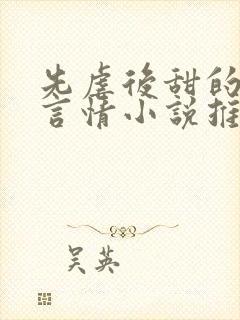 先虐後甜的
言情小說推
吴英